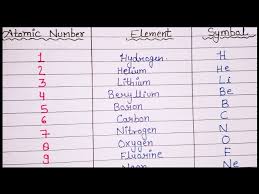 Atomic Number Element Symbol
1 Hydrogen H
2 Helium He
3 Lithium Li
4 Beryllium Be
5 Boron B
6 Carbon C
7 Nitrogen N
8 Oxygen O
9 Fluorine F
Neon Ne